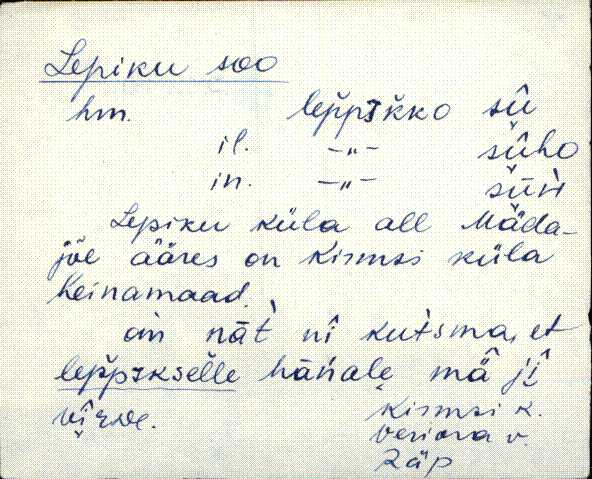 Lepiku soo
hm. lep̌pɪ̌kko sû
il. –„– sûho
in. –„– süń
Lepiku küla all Mäda-
jõe ääres on Kirmsi küla
heinamaad.
on nät̀ nî kut̀sma, et
lep̌pɪkselle hänale mâ jî
Kirmsi k.
Veriora v.
Räp